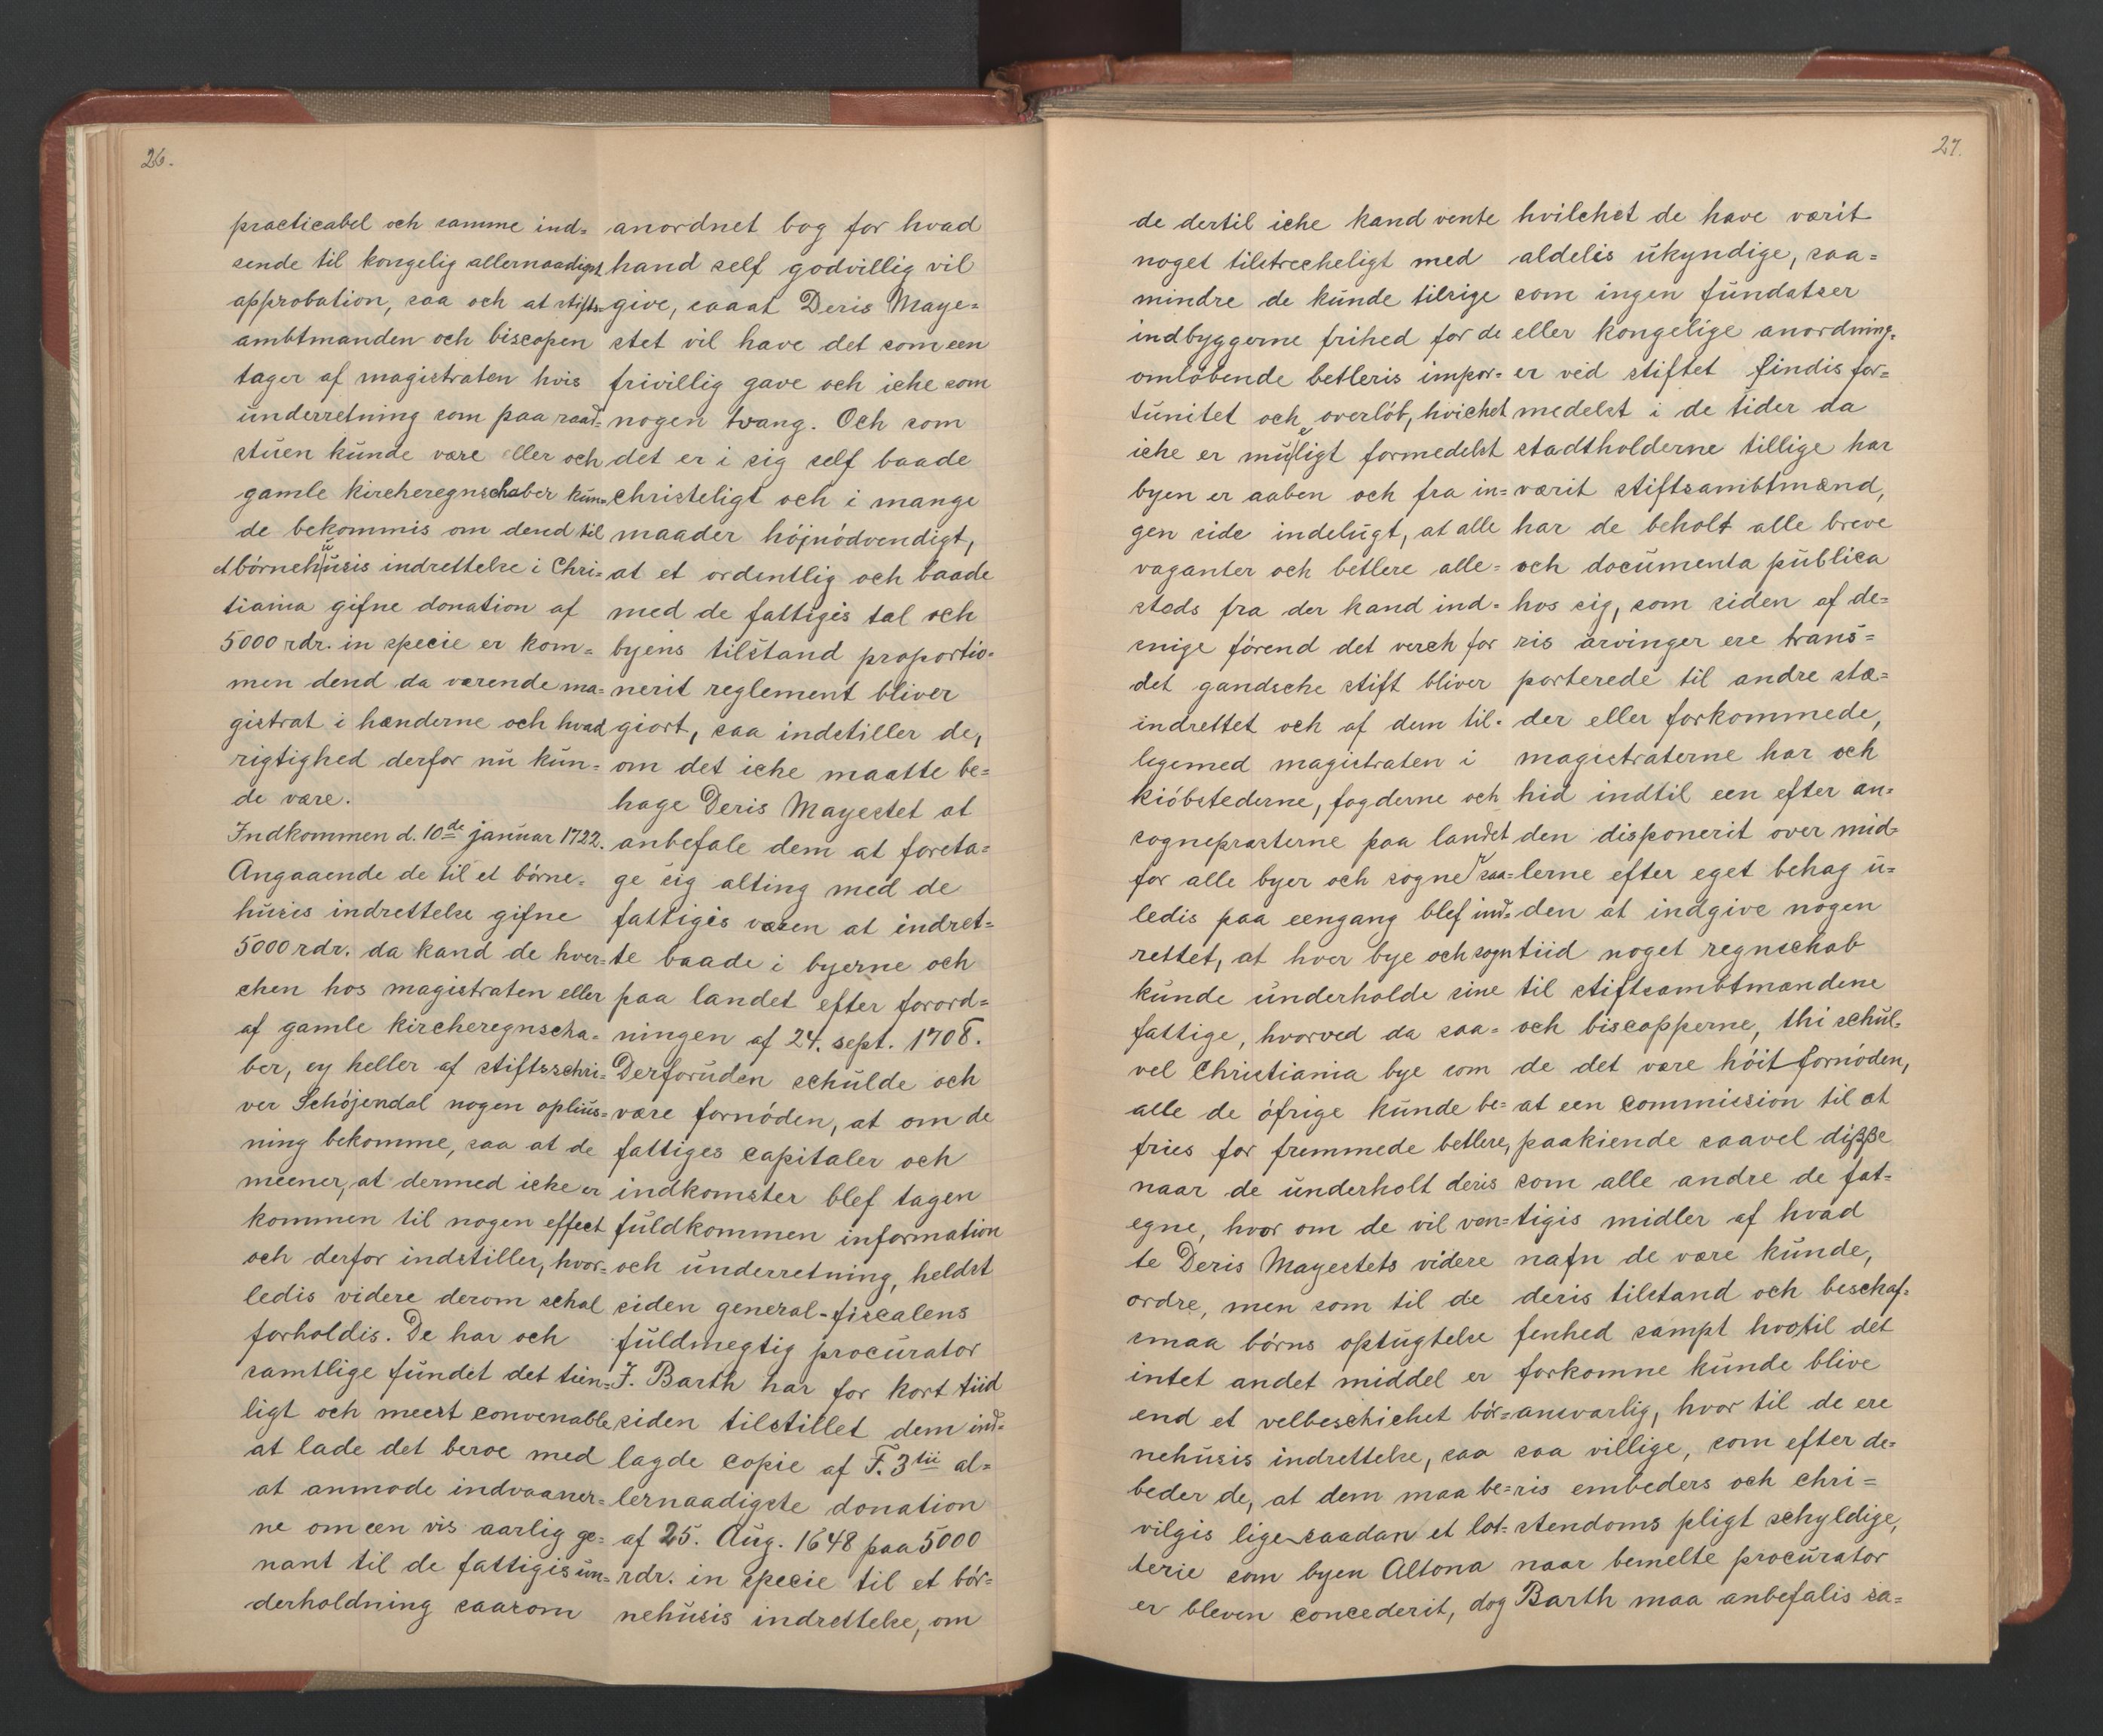 26.
practicabel och samme ind=
sende til kongelig allernaadigst
approbation, saa och at stifts=
ambtmanden och biscopen
tager af magistraten hvis
underretning som paa raad=
stuen kunde være eller och
gamle kircheregnschaber kun=
de bekommis om dend til
et börnehuusis indrettelse i Chri=
tiania gifne donation af
5000 rdr. in specie er kom=
men dend da værende ma=
gistrat i hænderne och hvad
rigtighed derfor nu kun=
de være.
Indkommen d. 10de januar 1722.
Angaaende de til et börne=
husis indrettelse gifne
5000 rdr. da kand de hver=
chen hos magistraten eller
af gamle kircheregnscha=
ber, ey heller af stiftsschri=
ver Schöjendal nogen oplius=
ning bekomme, saa at de
meener, at dermed icke er
kommen til nogen effect
och derfor indstiller, hvor=
ledis videre derom schal
forholdis. De har och
samtlige fundet det tien=
ligt och meest convenable
at lade det beroe med
at anmode indvaaner=
ne om een vis aarlig ge=
nant til de fattigis un=
derholdning saasom
anordnet bog for hvad
hand self godvillig vil
give, saaat Deris Maye=
stet vil have det som een
frivillig gave och iche som
nogen tvang. Och som
det er i sig self baade
christeligt och i mange
maader höjnödvendigt,
at et ordentlig och baade
med de fattigis tal och
byens tilstand proportio=
nerit reglement bliver
giort, saa indstiller de,
om det iche maatte be=
hage Deris Mayestet at
anbefale dem at foreta=
ge sig alting med de
fattigis væsen at indret=
te baade i byerne och
paa landet efter forord=
ningen af 24. sept. 1708.
Derforuden schulde och
være fornöden, at om de
fattiges capitaler och
indkomster blef tagen
fuldkommen information
och underretning, heldst
siden general-fiscalens
fuldmegtig procurator
J. Barth har for kort tiid
siden tilstillet dem ind=
lagde copie af F. 3tii al=
lernaadigste donation
af 25. Aug. 1648 paa 5000
rdr. in specie til et bör=
nehusis indrettelse, om
27.
de dertil iche kand vente
noget tilstrecheligt med
mindre de kunde tilsige
indbyggerne frihed for de
omlöbende betleris impor=
tunitet och overlöb, hvichet
iche er mueligt formedelst
byen er aaben och fra in=
gen side indelugt, at alle
vaganter och betlere alle=
steds fra der kand ind=
snige förend det verch for
det gandsche stift bliver
indrettet och af dem til=
ligemed magistraten i
kiöbstederne, fogderne och
sognepræsterne paa landet
for alle byer och sogner saa=
ledis paa eengang blef ind=
rettet, at hver bye och sogn
kunde underholde sine
fattige, hvorved da saa=
vel Christiania bye som
alle de öfrige kunde be=
fries for fremmede betlere,
naar de underholt deris
egne, hvor om de vil ven=
te Deris Mayestets videre
ordre, men som til de
smaa börns optugtelse
intet andet middel er
end et velbeschichet bör=
nehusis indrettelse, saa
beder de, at dem maa be=
vilgis lige saadan et lot=
terie som byen Altona
er bleven concederit, dog
hvilchet de have værit
aldelis ukyndige, saa=
som ingen fundatser
eller kongelige anordning=
er ved stiftet findis for=
medelst i de tider da
stadtholderne tillige har
værit stiftsambtmænd,
har de beholt alle breve
och documenta publica
hos sig, som siden af de=
ris arvinger ere trans=
porterede til andre stæ=
der eller forkommede,
magistraterne har och
hid indtil een efter an=
den disponerit over mid=
lerne efter eget behag u=
den at indgive nogen
tiid noget regnschab
til stiftsambtmandene
och biscopperne, thi schul=
de det være höit fornöden,
at een commission til at
paakiende saavel disse
som alle andre de fat=
tigis midler af hvad
nafn de være kunde,
deris tilstand och beschaf=
fenhed sampt hvotil det
forkomne kunde blive
ansvarlig, hvor til de ere
saa villige, som efter de=
ris embeders och chri=
stendoms pligt schyldige,
naar bemelte procurator
Barth maa anbefalis sa=